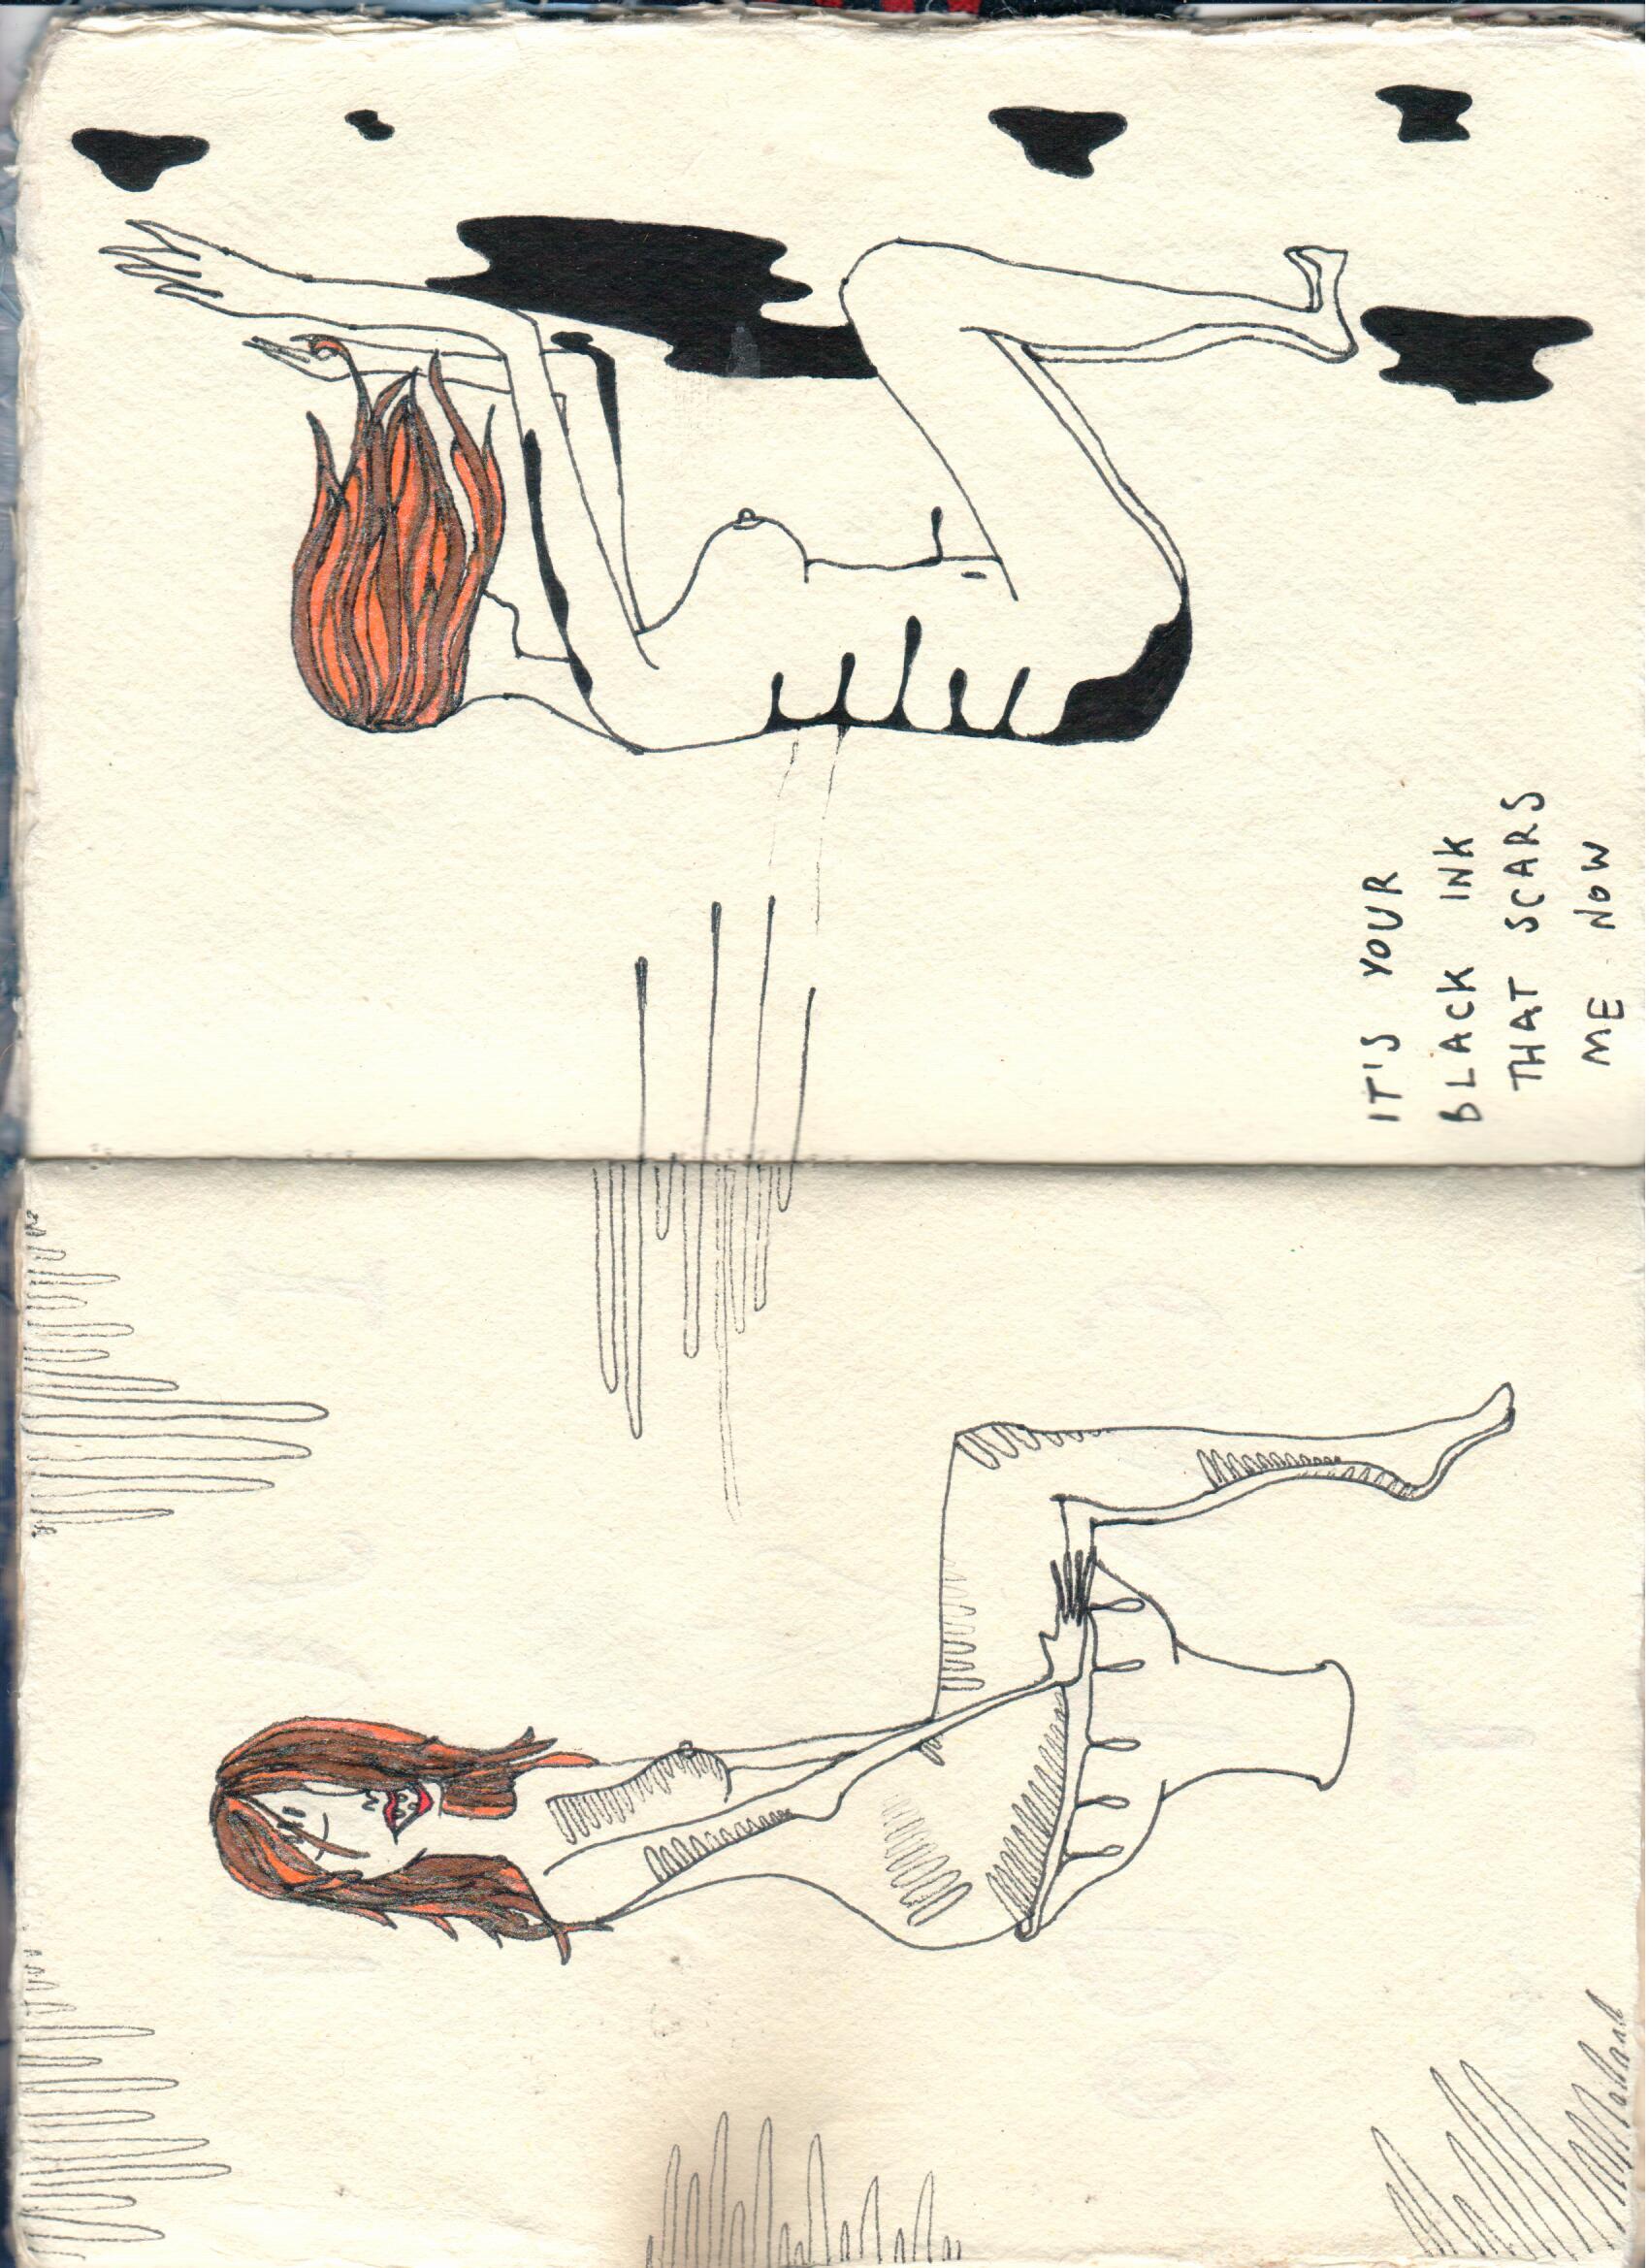 IT'S YOUR
BLACK INK
THAT SCARS
ME NOW